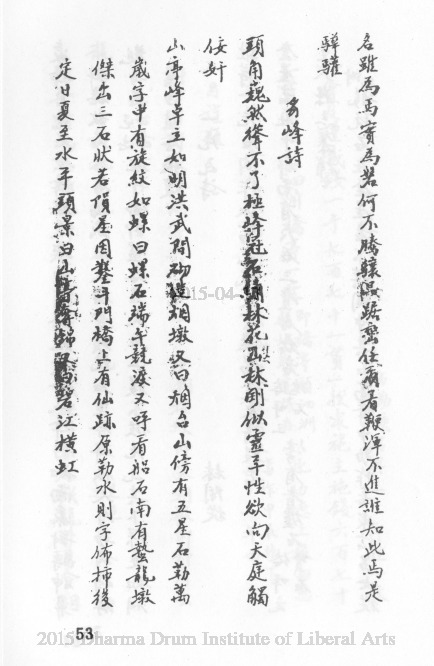 名雖為馬實為碧何不騰驤混踏蹰任爾看鞭渾不進誰知此馬是
驊驥
秀峰詩
頭角巍然聳不了極峰冠石 林花 林剛似靈羊性欲向天庭觸
佞奸
山亭峰卓立如明洪武間砌 烟墩又曰烟台山傍有五星石勒萬
歲字中有旋紋如螺曰螺石瑞午競渡又呼看船石南有蟄龍墩
傑出三石狀若隕星因鑿斗門橋上有仙跡原勒水則字佈柿後
定日夏至水平頭景曰山 碧江橫虹
2015-04-
53
2015 Dharma Drum Institute of Liberal Arts